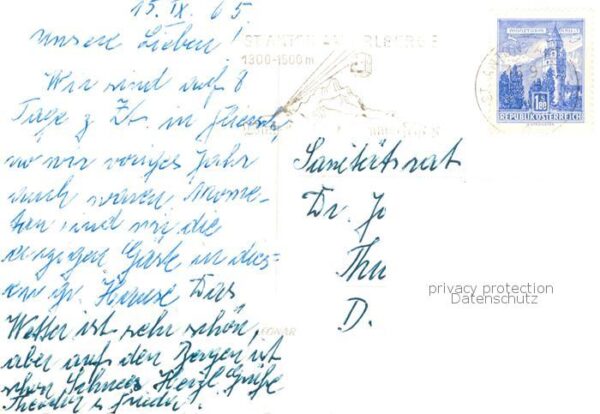 15. IX. 65
unsere Lieben!
Wir sind auf 8
Tage z. Zt. in
wo wir voriges Jahr
auch waren. Momen-
tan sind wir die
einzigen Gäste in dies-
em gr. Hause. Das
Wetter ist sehr schön,
aber auf den Bergen ist
schon Schnee. Herzl. Grüße
Theodor & Friedn.
ST. ANTON AM ARLBERG
1300-1500m
REPUBLIK ÖSTERREICH
1.80
Sanitätsrat
Dr. Jo
Thu
D.
privacy protection
Datenschutz